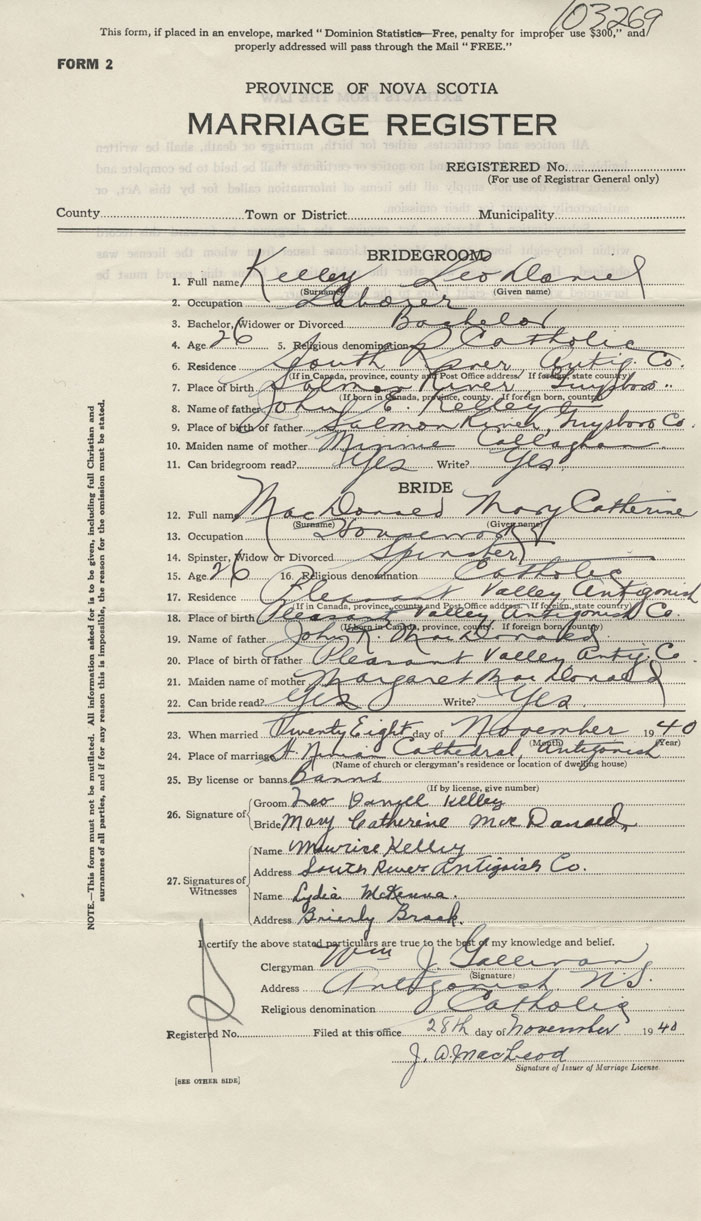 103269
This form, if placed in an envelope, marked "Dominion Statistics—Free, penalty for improper use $300," and
properly addressed will pass through the Mail "FREE."
FORM 2
PROVINCE OF NOVA SCOTIA
MARRIAGE REGISTER
REGISTERED No.
(For use of Registrar General only)
County Town or District Municipality
BRIDEGROOM
1. Full name Kelley Leo Daniel
(Surname) (Given name)
2. Occupation Laborer
3. Bachelor, Widower or Divorced Bachelor
4. Age 26 5. Religious denomination Catholic
6. Residence South River Antig. Co.
(If in Canada, province, county and Post Office address. If foreign, state country)
7. Place of birth Salmon River Guysboro "
(If born in Canada, province, county. If foreign born, country)
8. Name of father John E. Kelley
9. Place of birth of father Salmon River, Guysboro Co.
10. Maiden name of mother Minnie Callaghan
11. Can bridegroom read? Yes Write? Yes
BRIDE
12. Full name MacDonald Mary Catherine
(Surname) (Given name)
13. Occupation Housework
14. Spinster, Widow or Divorced Spinster
15. Age 26 16. Religious denomination Catholic
17. Residence Pleasant Valley Antigonish
(If in Canada, province, county and Post Office address. If foreign, state country)
18. Place of birth Pleasant Valley, Antigonish Co.
(If born in Canada, province, county. If foreign born, country)
19. Name of father John R. MacDonald
20. Place of birth of father Pleasant Valley Antig. Co
21. Maiden name of mother Margaret MacDonald
22. Can bride read? Yes Write? Yes.
23. When married Twenty Eight day of November 1940
(Month) (Year)
24. Place of marriage St. Ninian Cathedral, Antigonish
(Name of church or clergyman's residence or location of dwelling house)
25. By license or banns Banns
(If by license, give number)
26. Signature of Groom Leo Daniel Kelley
Bride Mary Catherine MacDonald
27. Signatures of Witnesses
Name Maurice Kelley
Address South River Antigonish Co.
Name Lydia McKenna.
Address Brierly Brook.
I certify the above stated particulars are true to the best of my knowledge and belief.
Clergyman Wm J. Gallivan
(Signature)
Address Antigonish N.S.
Religious denomination Catholic
Registered No. Filed at this office 28th day of November 1940
J. A. MacLeod
Signature of Issuer of Marriage License
[SEE OTHER SIDE]
NOTE.—This form must not be mutilated. All information asked for is to be given, including full Christian and
surnames of all parties, and if for any reason this is impossible, the reason for the omission must be stated.